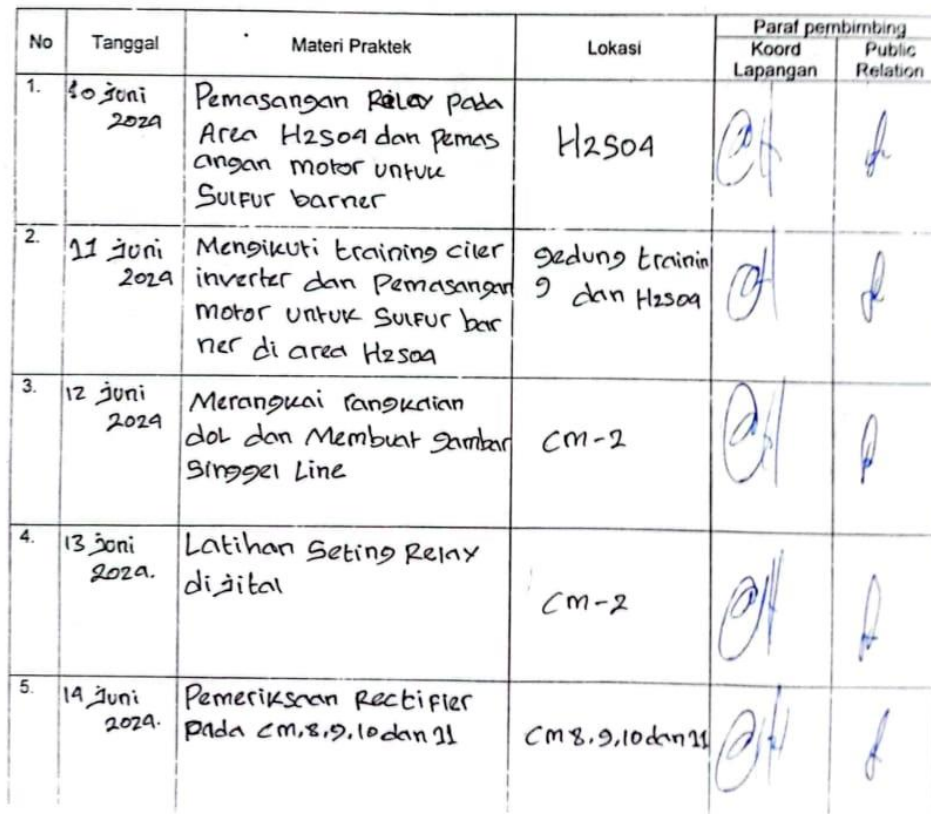 No Tanggal Materi Praktek Lokasi Paraf pembimbing
Koord Lapangan Public Relation
1. 10 Juni 2024
Pemasangan Relay pada
Area H2SO4 dan pemas
angan motor untuk
Sulfur barner
H2SO4
2. 11 Juni 2024
Mengikuti training ciler
inverter dan Pemasangan
motor untuk Sulfur bar
ner di area H2SO4
gedung trainin
g dan H2SO4
3. 12 Juni 2024
Merangkai rangkaian
dol dan Membuat gambar
Singgel Line
CM-2
4. 13 Juni 2024.
Latihan Seting Relay
dijital
CM-2
5. 14 Juni 2024.
Pemeriksaan Rectifier
pada CM.8.9.10 dan 11
CM 8.9.10 dan 11